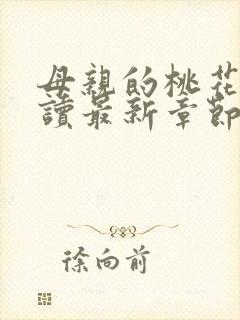 母親的桃花
讀最新章節
徐向前